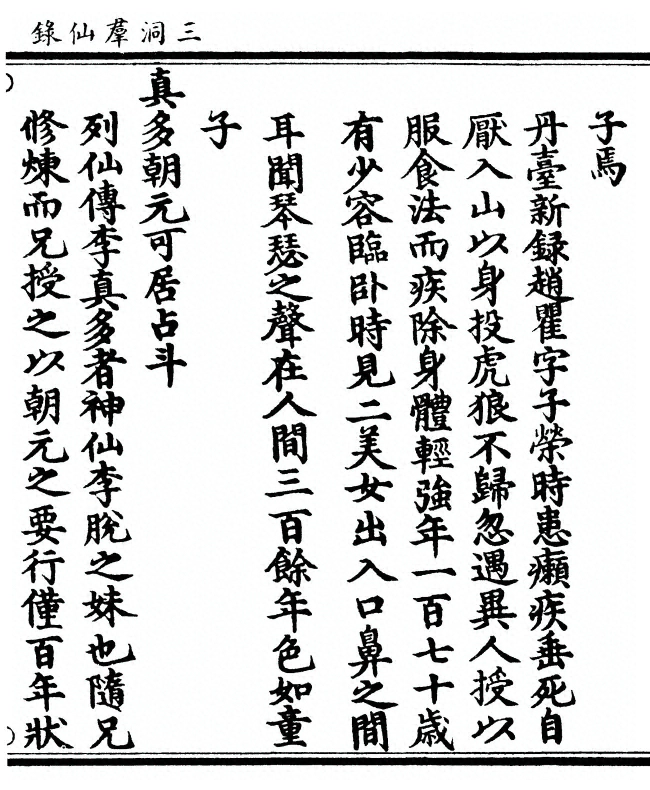 三洞羣仙錄
子焉
丹臺新錄趙瞿字子榮時患癩疾垂死自
厭入山以身投虎狼不歸忽遇異人授以
服食法而疾除身體輕強年一百七十歲
有少容臨卧時見二美女出入口鼻之間
耳聞琴瑟之聲在人間三百餘年色如童
子
真多朝元可居占斗
列仙傳李真多者神仙李脫之妹也隨兄
修煉而兄授之以朝元之要行僅百年狀